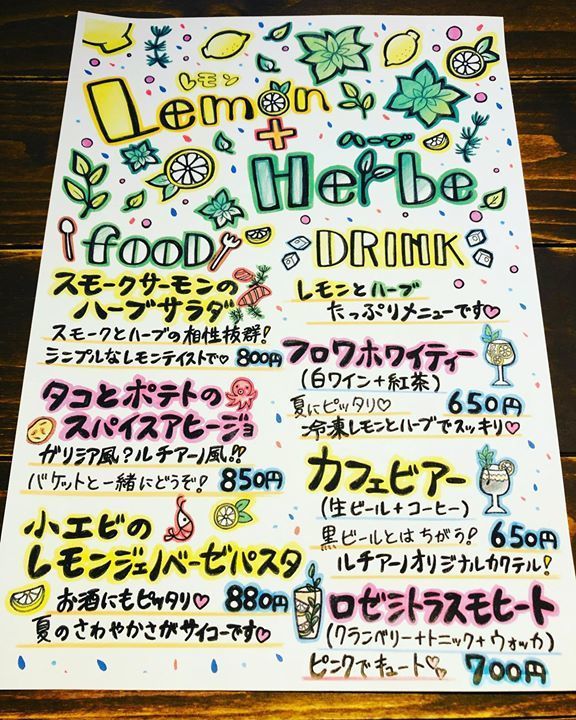 レモン
Lemon
+
ハーブ
Herbe
fooD
スモークサーモンの
ハーブサラダ
スモークとハーブの相性抜群!
シンプルなレモンテイストで♡ 800円
タコとポテトの
スパイスアヒージョ
ガリシア風?ルチアーノ風!!
バケットと一緒にどうぞ! 850円
小エビの
レモンジェノベーゼパスタ
お酒にもピッタリ♡ 880円
夏のさわやかさがサイコーです♡
DRINK
レモンとハーブ
たっぷりメニューです♡
フロワホワイティー
(白ワイン+紅茶)
夏にピッタリ♡ 650円
冷凍レモンとハーブでスッキリ♡
カフェビアー
(生ビール+コーヒー)
黒ビールとはちがう! 650円
ルチアーノオリジナルカクテル!
ロゼシトラスモヒート
(クランベリー+トニック+ウォッカ)
ピンクでキュート♡ 700円